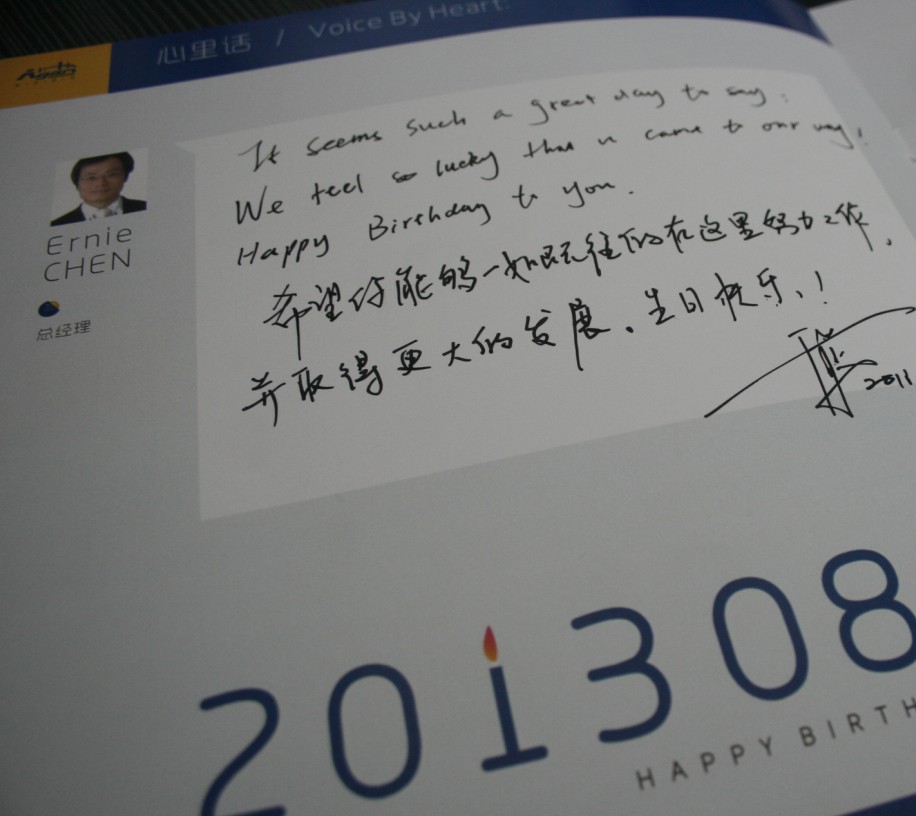 心里话 / Voice By Heart:
Ernie
CHEN
总经理
It seems such a great day to say:
We feel so lucky that u came to our way!
Happy Birthday to you.
希望你能够一如既往的在这里努力工作,
并取得更大的发展、生日快乐、!
2011
2013 08
HAPPY BIRTH